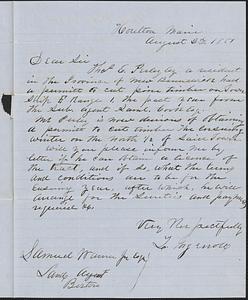 Houlton Maine
August 23, 18
Dear Sir
Thos. C. Perley a resident
in the Province of New Brunswick had
a permit to cut pine timber on Town
Ship E Range 1, the past year from
the Sub Agent
Mr Perley is now desirous of obtaining
a permit to cut timber the ensuing
winter on the North ½ of said Town
Will you please inform me by
letter if he can obtain a license of
the tract, and if so, what the terms
and conditions are to be for the
ensuing year, after which, he will
arrange for the Sureties and payment
required &c.
Very Respectfully
Samuel Warner Jr Esq
Land Agent
Boston